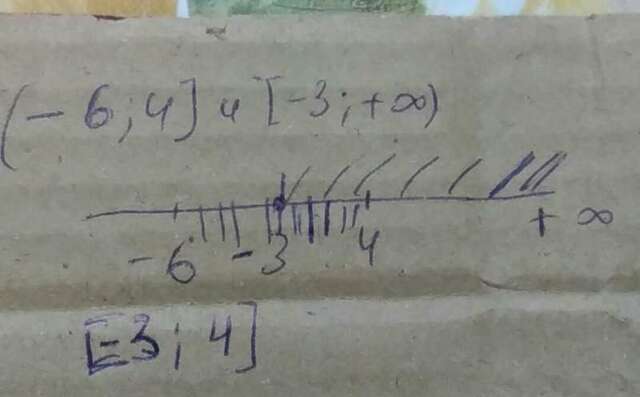 (-6;4] и [-3;+∞)
-6 -3 4 +∞
[-3;4]